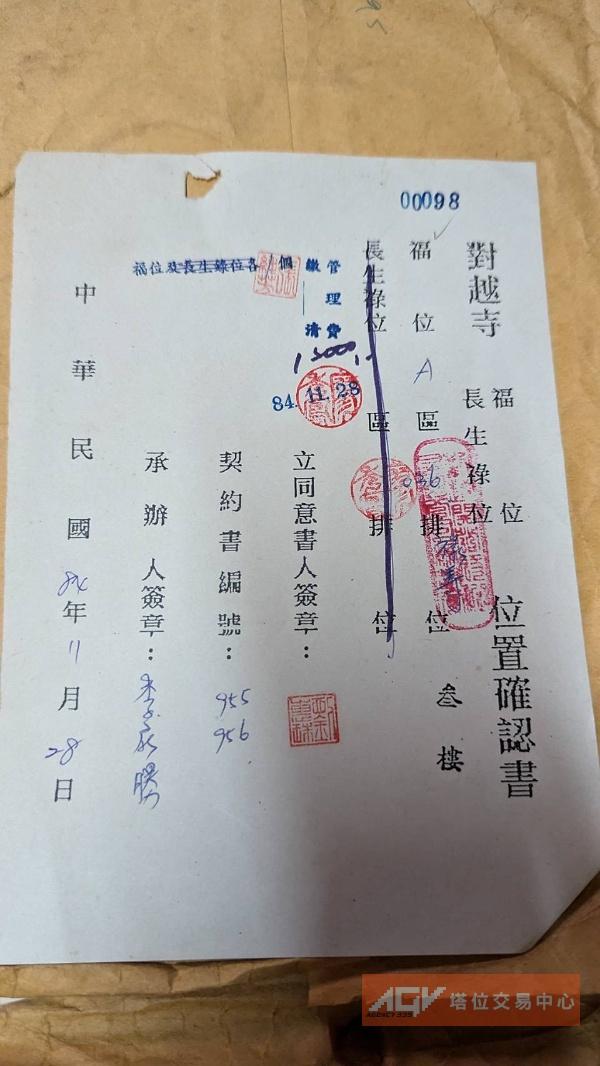 00098
對越寺
福位
長生祿位
位置確認書
福位A區036排祿叁位叁樓
長生祿位區排位
管理費
繳清
15000
福位及長生祿位各1個
84.11.28
立同意書人簽章：
契約書編號：955
956
承辦人簽章：
中華民國84年11月28日
AGV 塔位交易中心